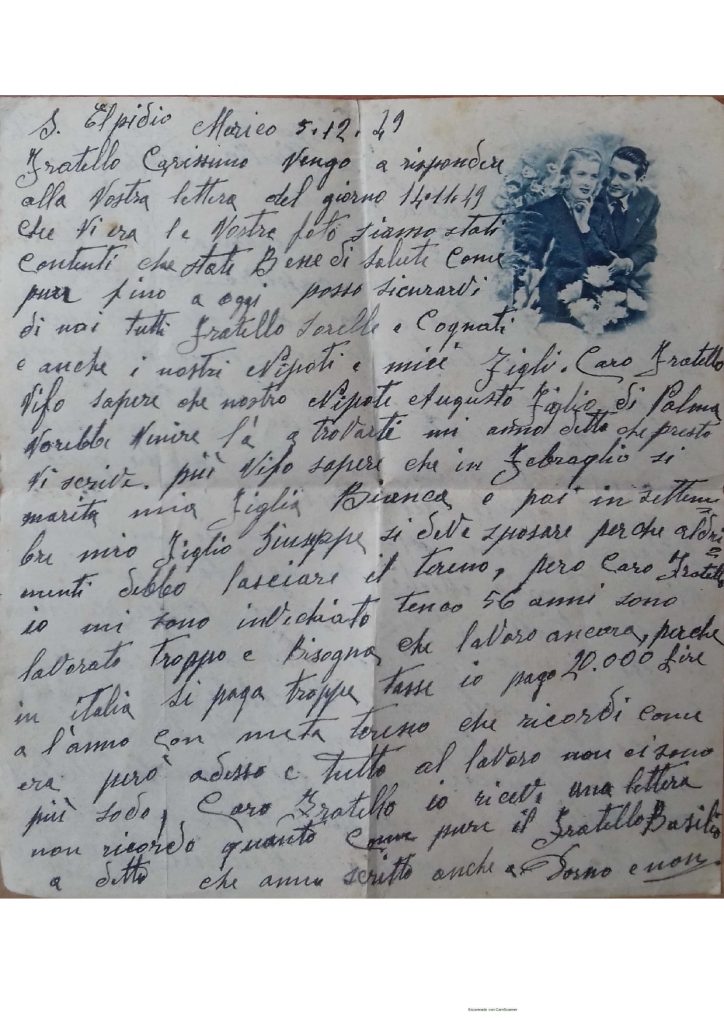 S. Elpidio Morico 5.12.49
Fratello Carissimo Vengo a rispondere
alla Vostra lettera del giorno 14.11.49
che Vi era le Vostre foto siamo stati
contenti che state Bene di salute Come
pure fino a oggi posso sicurarvi
di noi tutti Fratello sorelle e Cognati
e anche i nostri Nipoti e miei Figli. Caro Fratello
Vifo sapere che nostro Nipote Augusto Figlio di Palma
Vorebbe Venire l'à a trovarte mi anno detto che presto
Vi scrive. più Vifo sapere che in Febraglio si
marita mia Figlia Bianca e poi in settem
bre mio Figlio Giuseppe si deve sposare perche aldri
menti debbo lasciare il tereno, pero Caro Fratello
io mi sono invechiato tenco 56 anni sono
lavorato troppo e Bisogna che lavoro ancora, perche
in italia si paga troppe tasse io pago 20.000 lire
a l'anno con meta tereno che ricordi come
era però adesso e tutto al lavoro non ci sono
più sodo, Caro Fratello io ricevi una lettera
non ricordo quanto pure il Fratello Basilio
a detto che anno scritto anche a e non
Escaneado con CamScanner